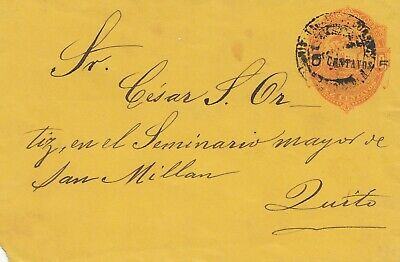 CENTAVOS
Sr.
César S. Or_
tiz, en el Seminario mayor de
san Millan
Quito